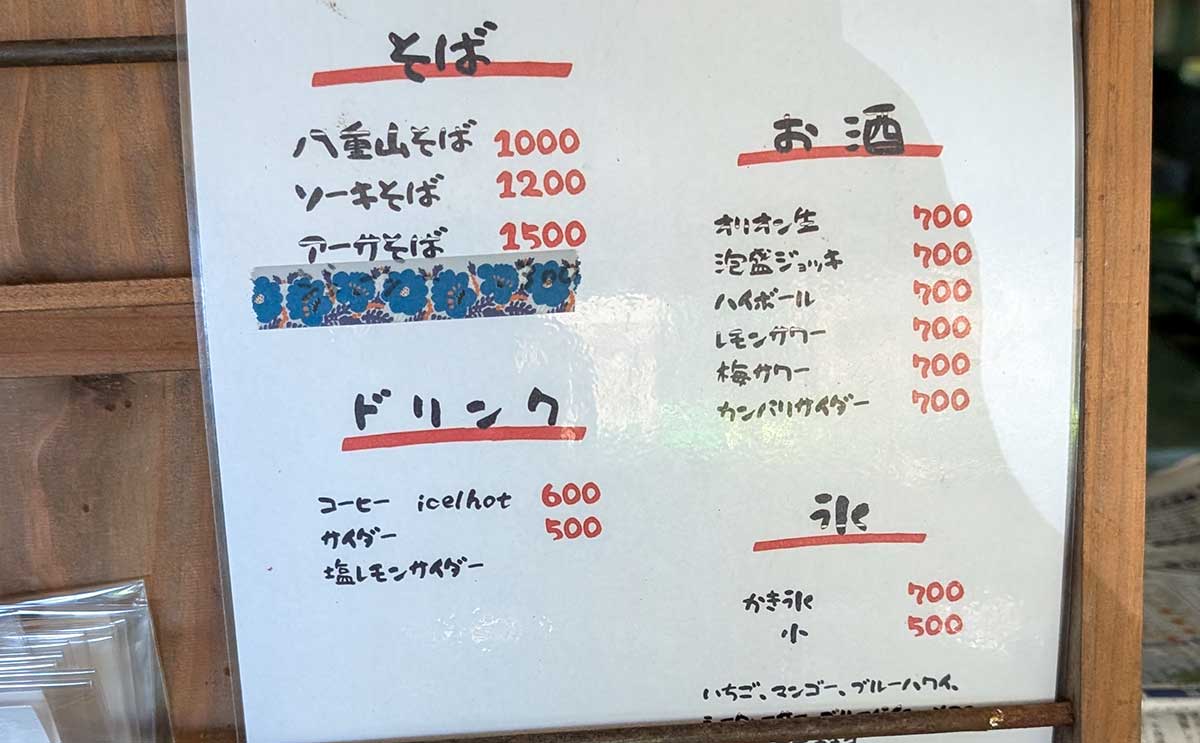 そば
八重山そば 1000
ソーキそば 1200
アーサそば 1500
ドリンク
コーヒー ice/hot 600
サイダー 500
塩レモンサイダー
お酒
オリオン生 700
泡盛ジョッキ 700
ハイボール 700
レモンサワー 700
梅サワー 700
カンパリサイダー 700
氷
かき氷 700
小 500
いちご、マンゴー、ブルーハワイ、